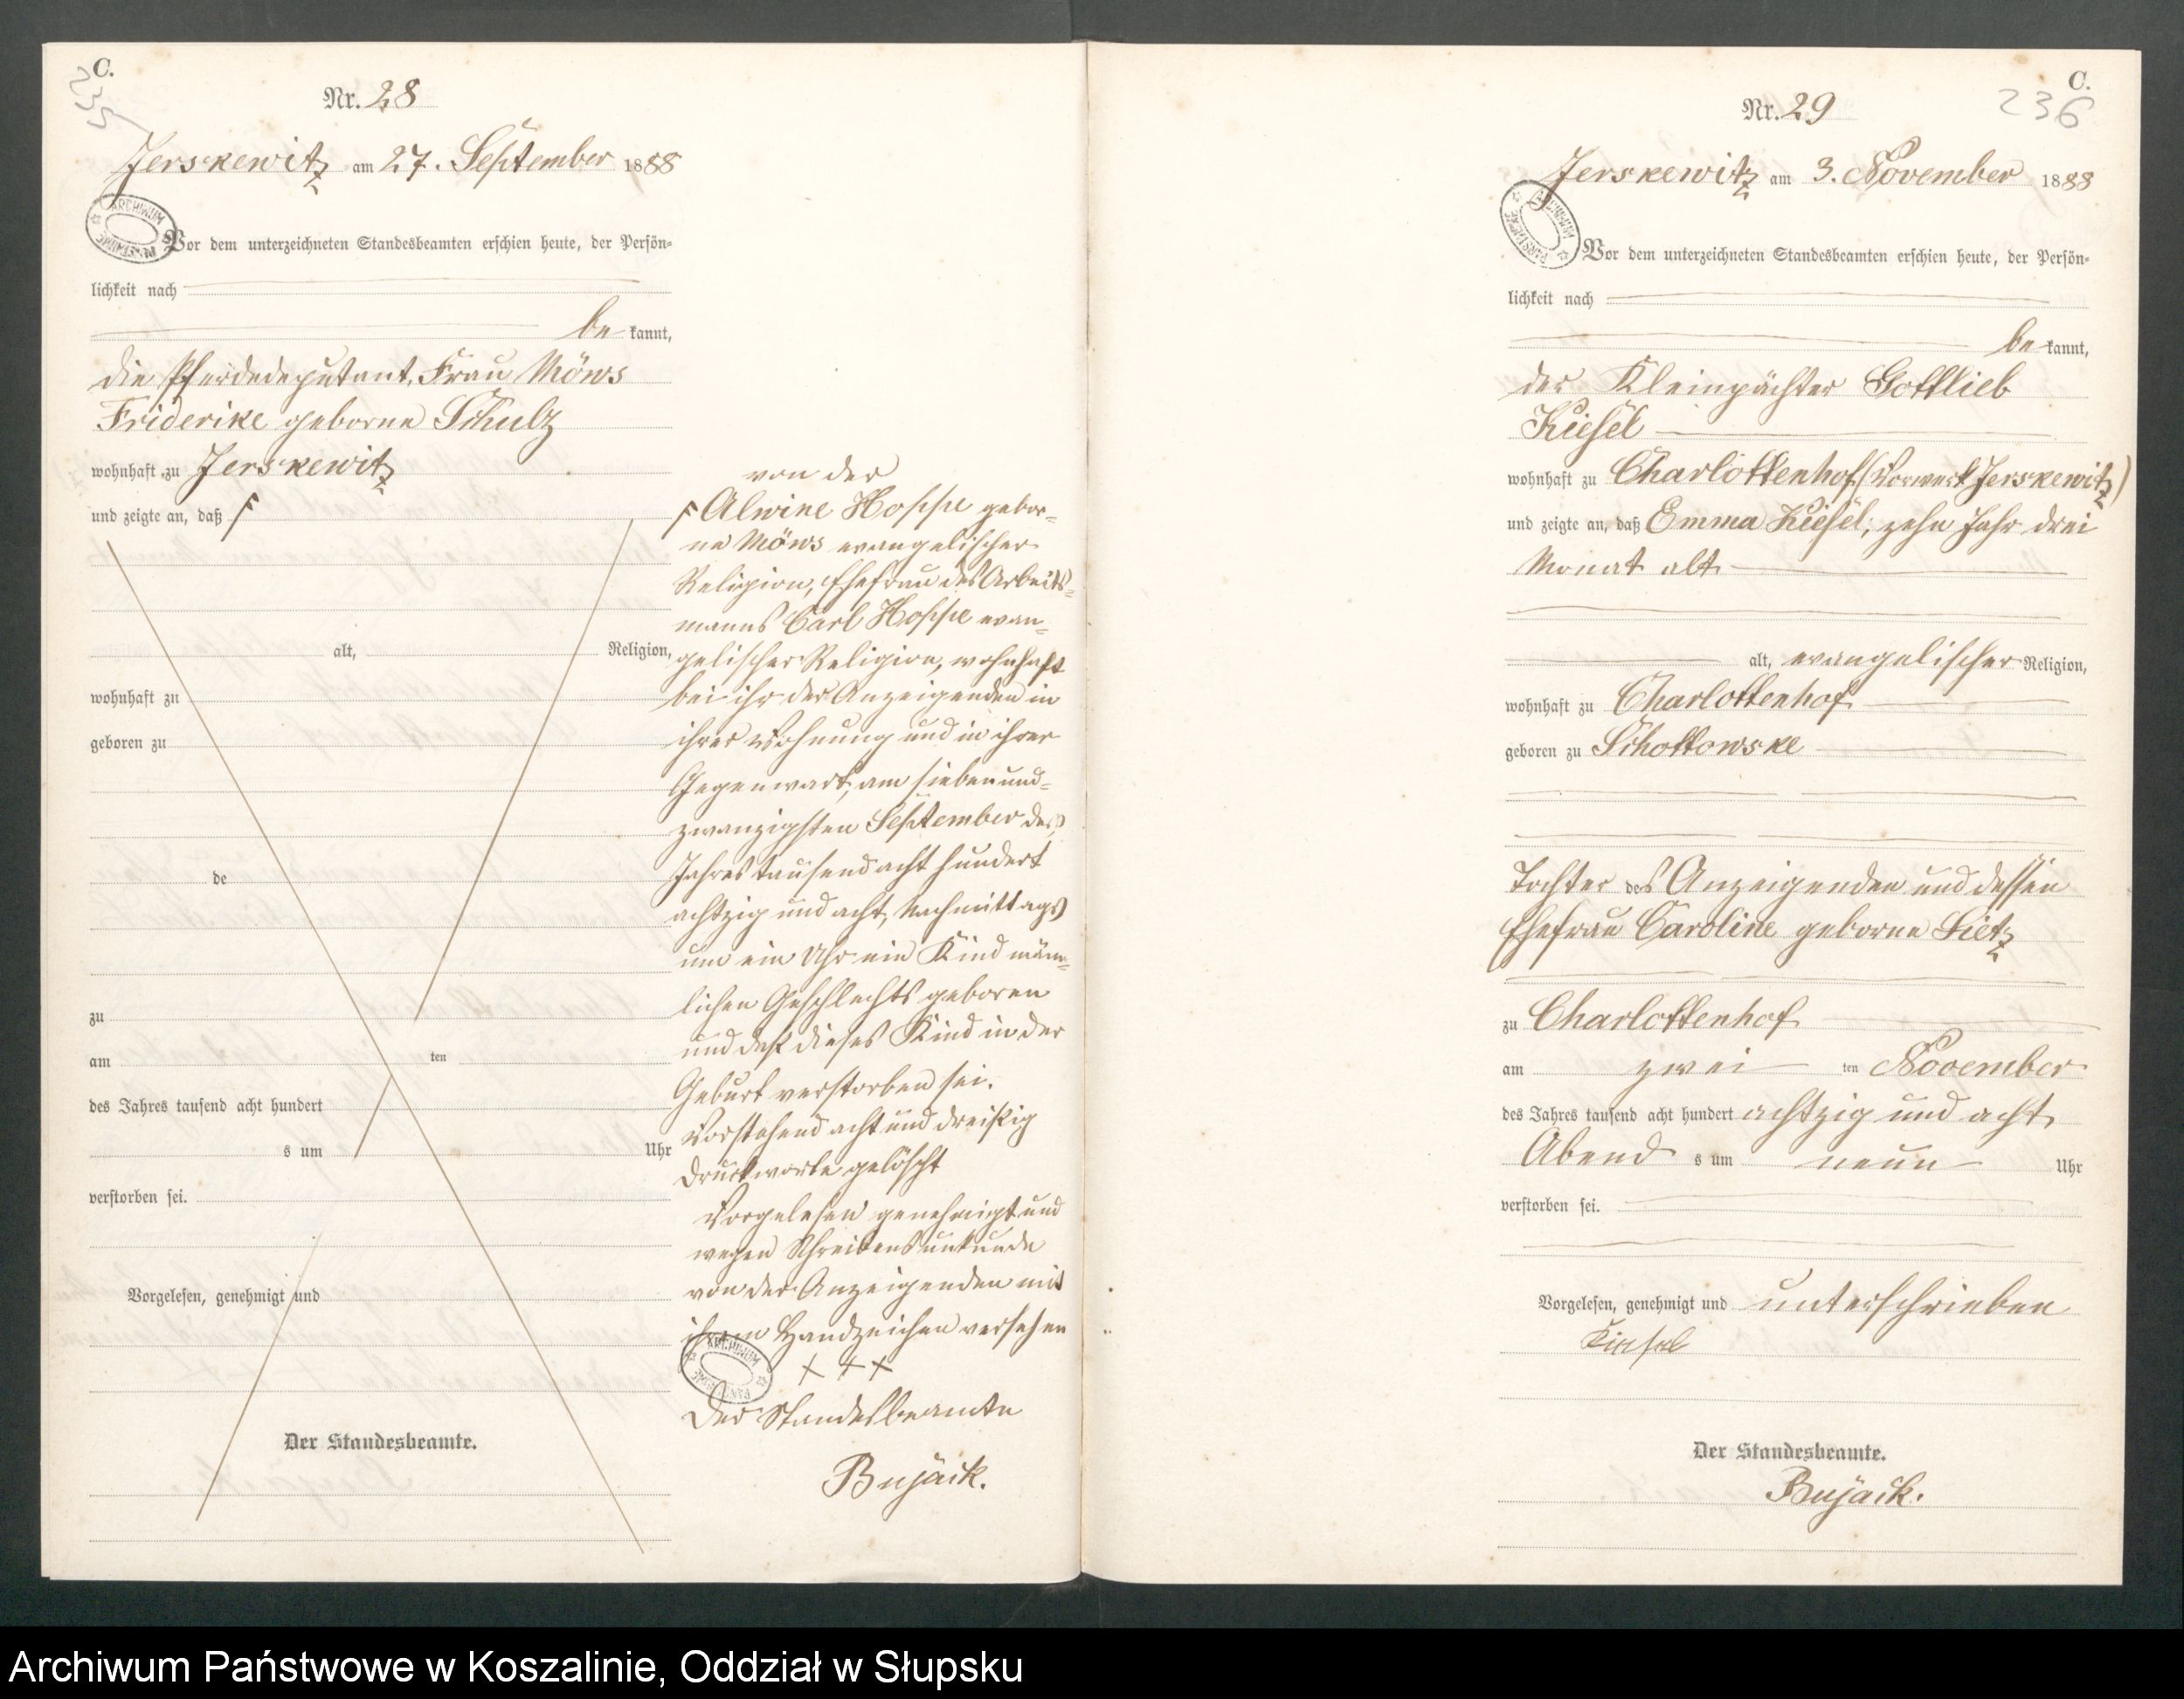 C.
235
Nr. 28
Jerskewitz am 27. September 1888
Vor dem unterzeichneten Standesbeamten erschien heute, der Persön-
lichkeit nach
be kannt,
die Pferdedeputant, Frau Möws
Friderike geborne Schulz
wohnhaft zu Jerskewitz
und zeigte an, daß
alt, Religion,
wohnhaft zu
geboren zu
de
zu
am ten
des Jahres tausend acht hundert
s um Uhr
verstorben sei.
Vorgelesen, genehmigt und
Der Standesbeamte.
von der
Alwine Hoppe gebor-
ne Möws evangelischer
Religion, Ehefrau des Arbeits-
manns Carl Hoppe evan-
gelischer Religion, wohnhaft
bei ihr der Anzeigenden in
ihrer Wohnung und in ihrer
Gegenwart, am sieben und-
zwanzigsten September des
Jahres tausend acht hundert
achtzig und acht, Nachmittags
um ein Uhr ein Kind männ-
lichen Geschlechts geboren
und daß dieses Kind in der
Geburt verstorben sei.
Vorstehend acht und dreißig
Druckworte gelöscht
Vorgelesen genehmigt und
wegen Schreibensunkunde
von der Anzeigenden mit
ihrem Handzeichen versehen
+ + +
ARCHIWUM
Der Standesbeamte
Bujack.
C.
236
Nr. 29
Jerskewitz am 3. November 1888
Vor dem unterzeichneten Standesbeamten erschien heute, der Persön-
lichkeit nach
be kannt,
der Kleinpächter Gottlieb
Kiesel
wohnhaft zu Charlottenhof (Vorwerk Jerskewitz)
und zeigte an, daß Emma Kiesel, zehn Jahr drei
Monat alt
alt, evangelischer Religion,
wohnhaft zu Charlottenhof
geboren zu Schottowske
Tochter des Anzeigenden und dessen
Ehefrau Caroline geborne Lietz
zu Charlottenhof
am zwei ten November
des Jahres tausend acht hundert achtzig und acht
Abend s um neun Uhr
verstorben sei.
Vorgelesen, genehmigt und unterschrieben
Kiesel
Der Standesbeamte.
Bujack.
Archiwum Państwowe w Koszalinie, Oddział w Słupsku